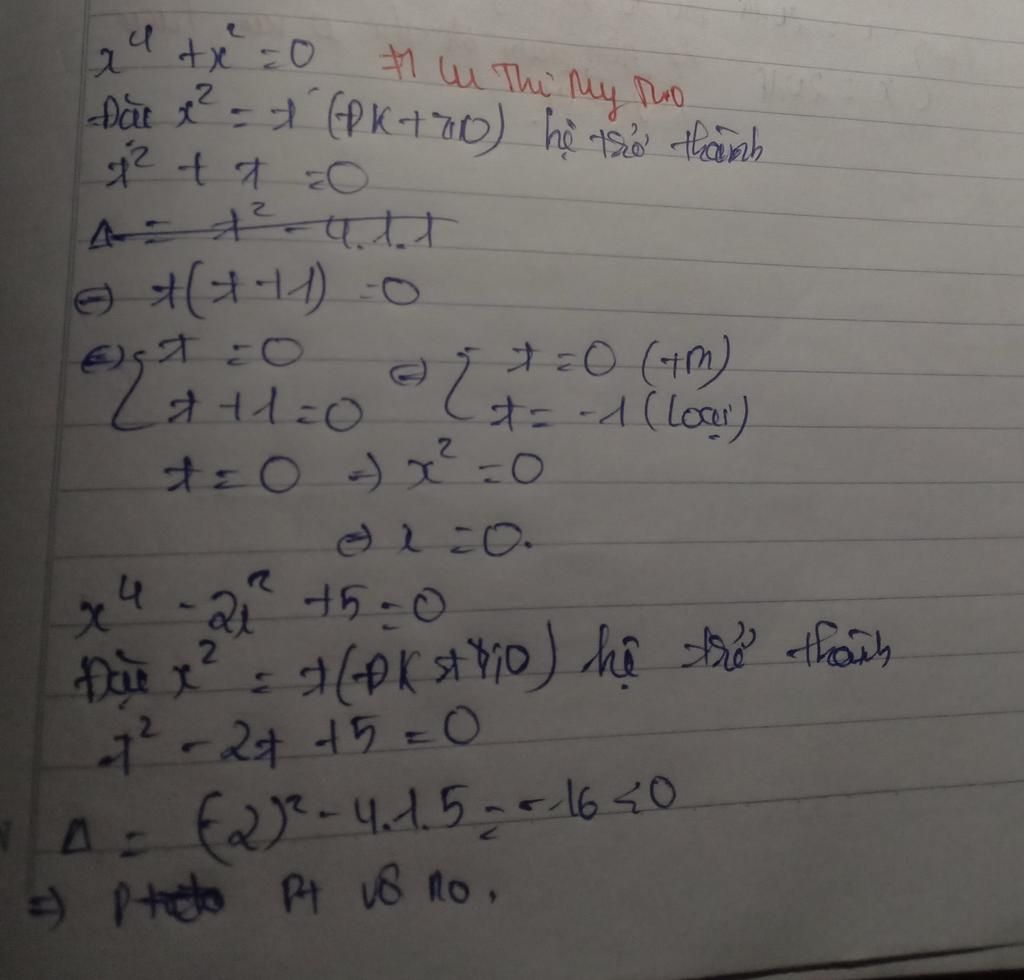 x⁴ + x² = 0 Thị My
Đặt x² = t (ĐK t ≥ 0) hệ trở thành
t² + t = 0
Δ = t² - 4.1.1
⇔ t(t + 1) = 0
⇔ { t = 0 ⇔ { t = 0 (tm)
t + 1 = 0 t = -1 (loại)
t = 0 ⇒ x² = 0
⇔ x = 0.
x⁴ - 2x² + 5 = 0
Đặt x² = t (ĐK t ≥ 0) hệ trở thành
t² - 2t + 5 = 0
Δ = (-2)² - 4.1.5 = -16 < 0
⇒ Pt vô no.